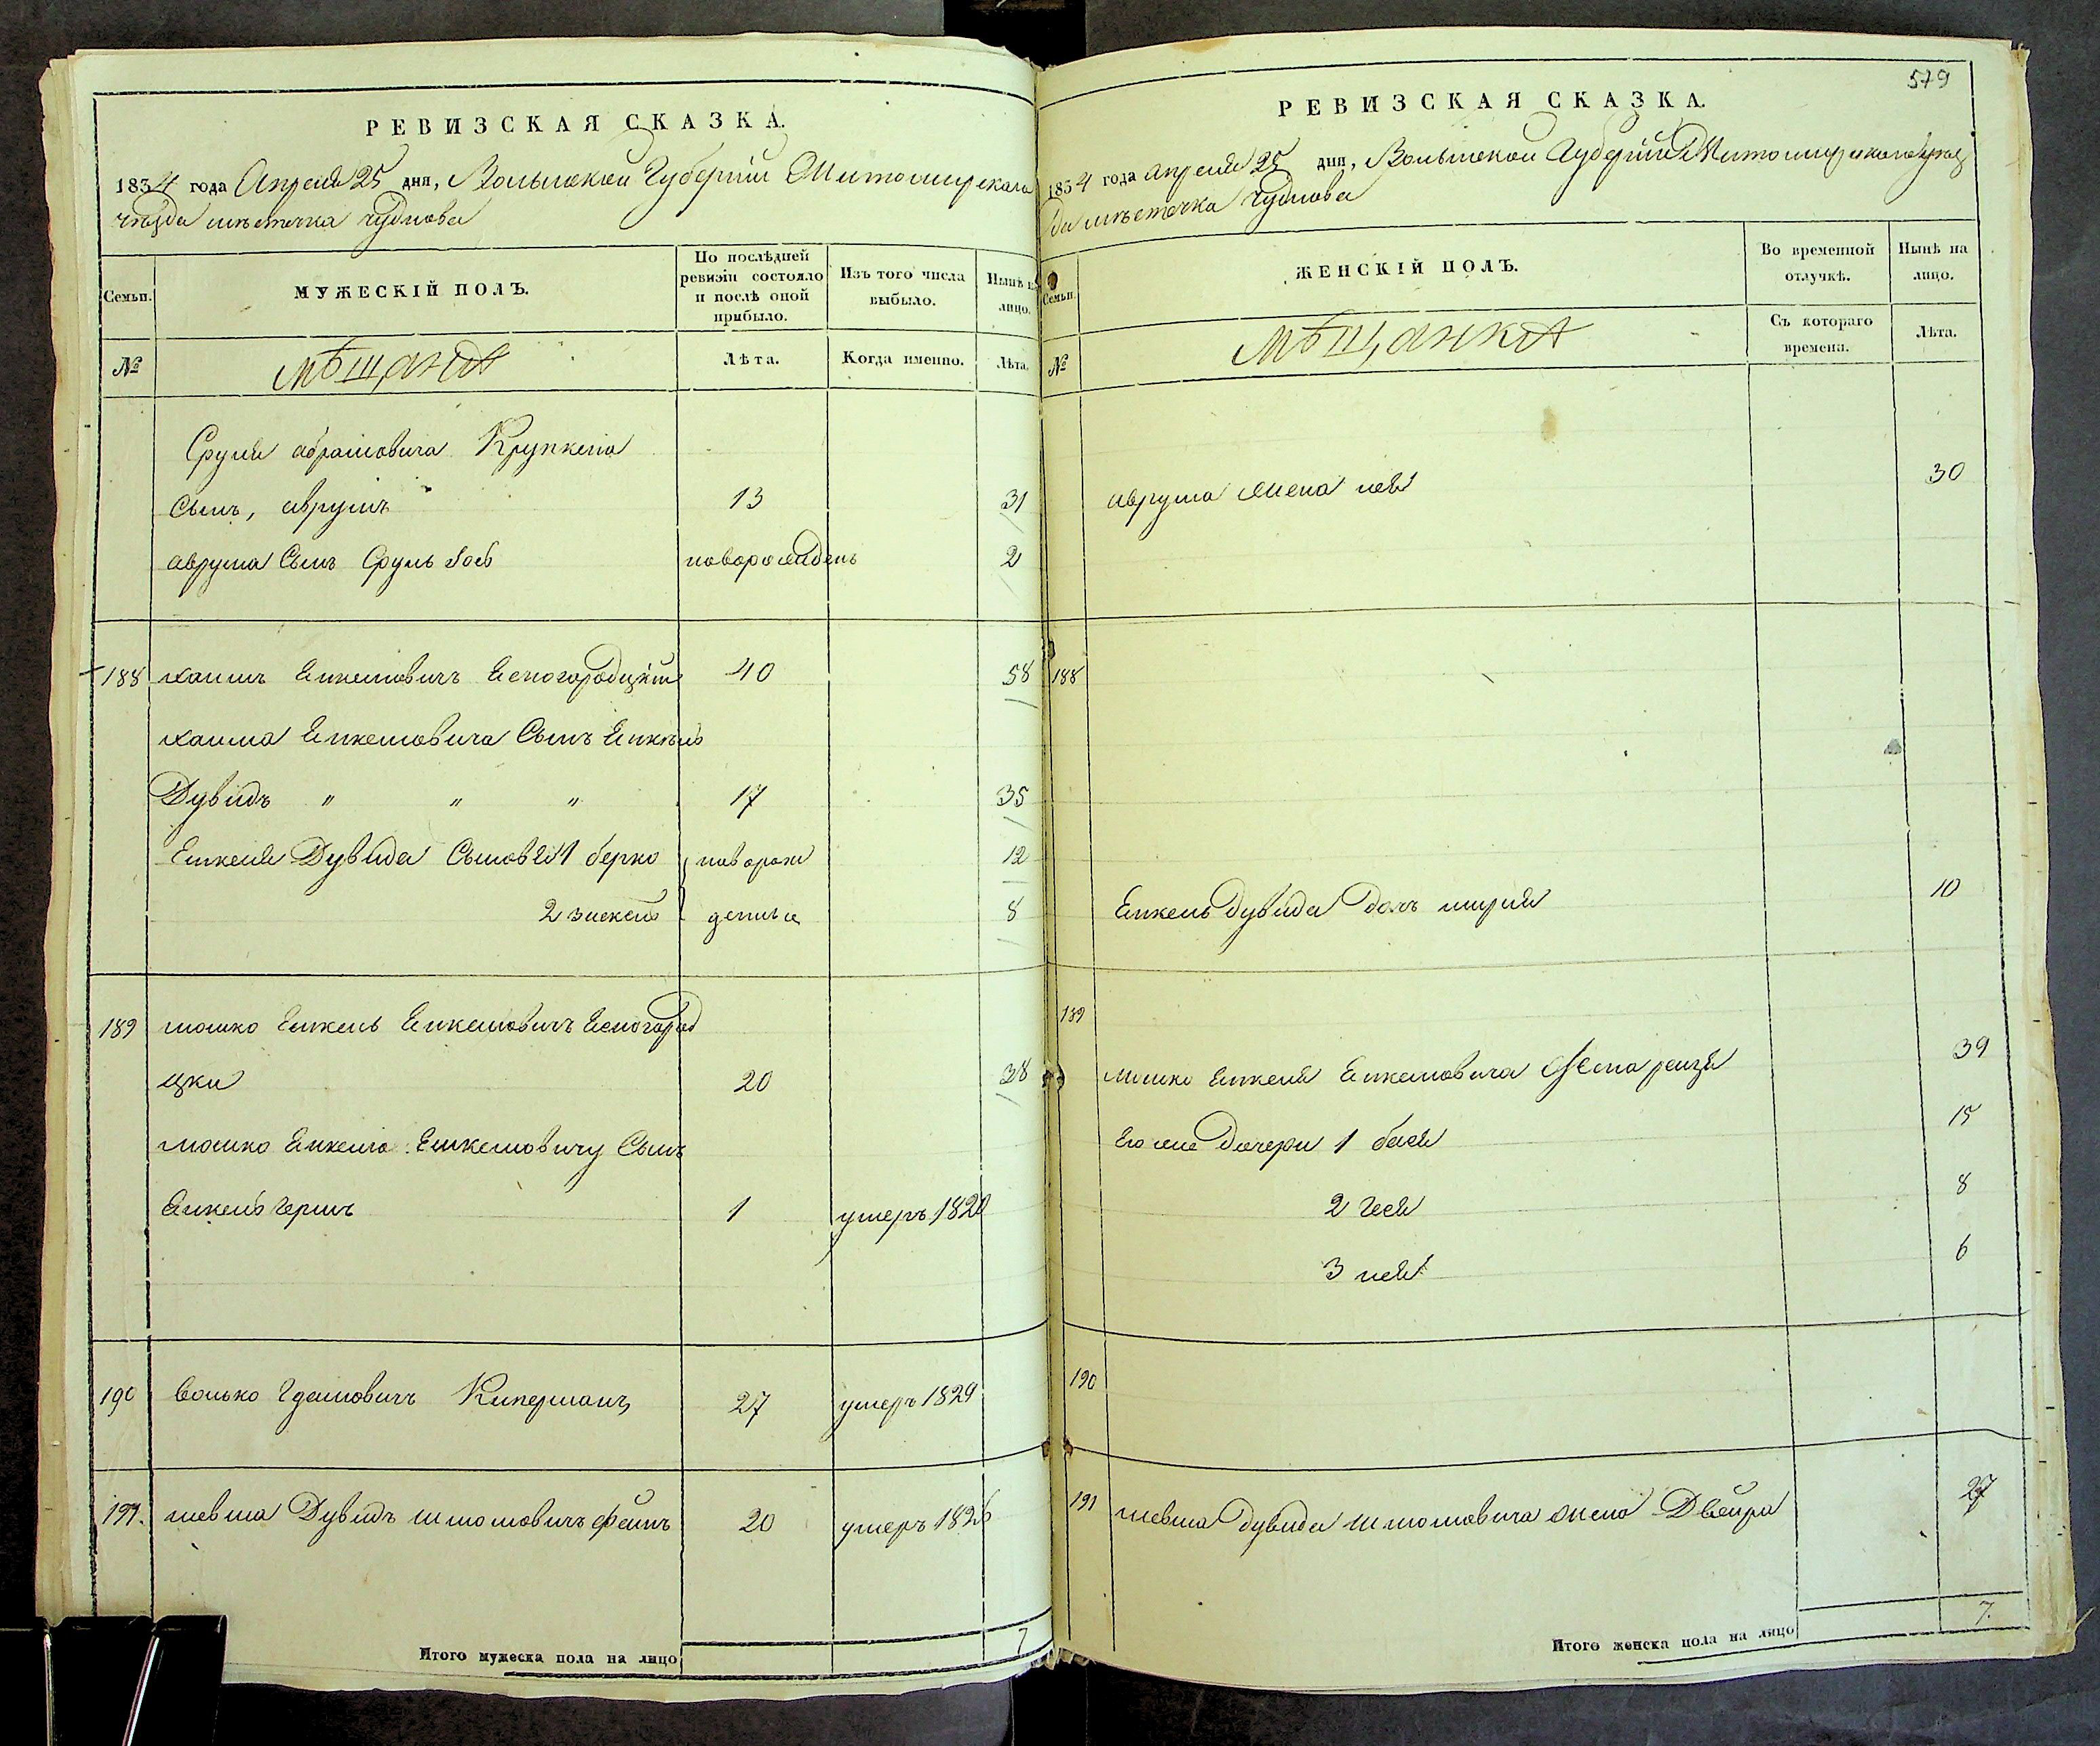 РЕВИЗСКАЯ СКАЗКА.
1834 года Апреля 25 дня, Волынской Губерніи Житомирскаго
уѣзда мѣстечка Чуднова
Семьи.
МУЖЕСКІЙ ПОЛЪ.
По послѣдней ревизіи состояло и послѣ оной прибыло.
Изъ того числа выбыло.
Нынѣ на лицо.
№
мѣщане
Лѣта.
Когда именно.
Лѣта.
Сруля абрамовича Крупкена
Сынъ, аврумъ 13 31
аврума Сынъ Сруль новорожденъ 2
188 хаимъ Енкелювичъ Ясногородцкій 40 58
хаима Енкелювича Сынъ Енкель
Дувидъ " " " 17 35
Енкеля Дувида Сыновья 1 берко новорож 12
2 денные 8
189 мошко Енкель Енкелювичъ Ясногород
цки 20 38
мошко Енкеля Енкелювичу Сынъ
Енкель гершъ 1 умеръ 1820
190 волько Киперманъ 27 умеръ 1829
191. Дувидъ шмолювичъ фейнъ 20 умеръ 1826
Итого мужеска пола на лицо 7
579
РЕВИЗСКАЯ СКАЗКА.
1834 года апреля 25 дня, Волынской Губерніи Житомирскаго уѣз
да мѣстечка Чуднова
Семьи.
ЖЕНСКІЙ ПОЛЪ.
Во временной отлучкѣ.
Нынѣ на лицо.
№
мѣщанка
Съ котораго времени.
Лѣта.
аврума жена лея 30
188
Енкель дувида дочь 10
189
мошко Енкеля Енкелювича жена рейзя 39
Его же Дочери 1 бася 15
2 8
3 лея 6
190
191 дувида шмолювича жена Двейра 27
Итого женска пола на лицо 7.